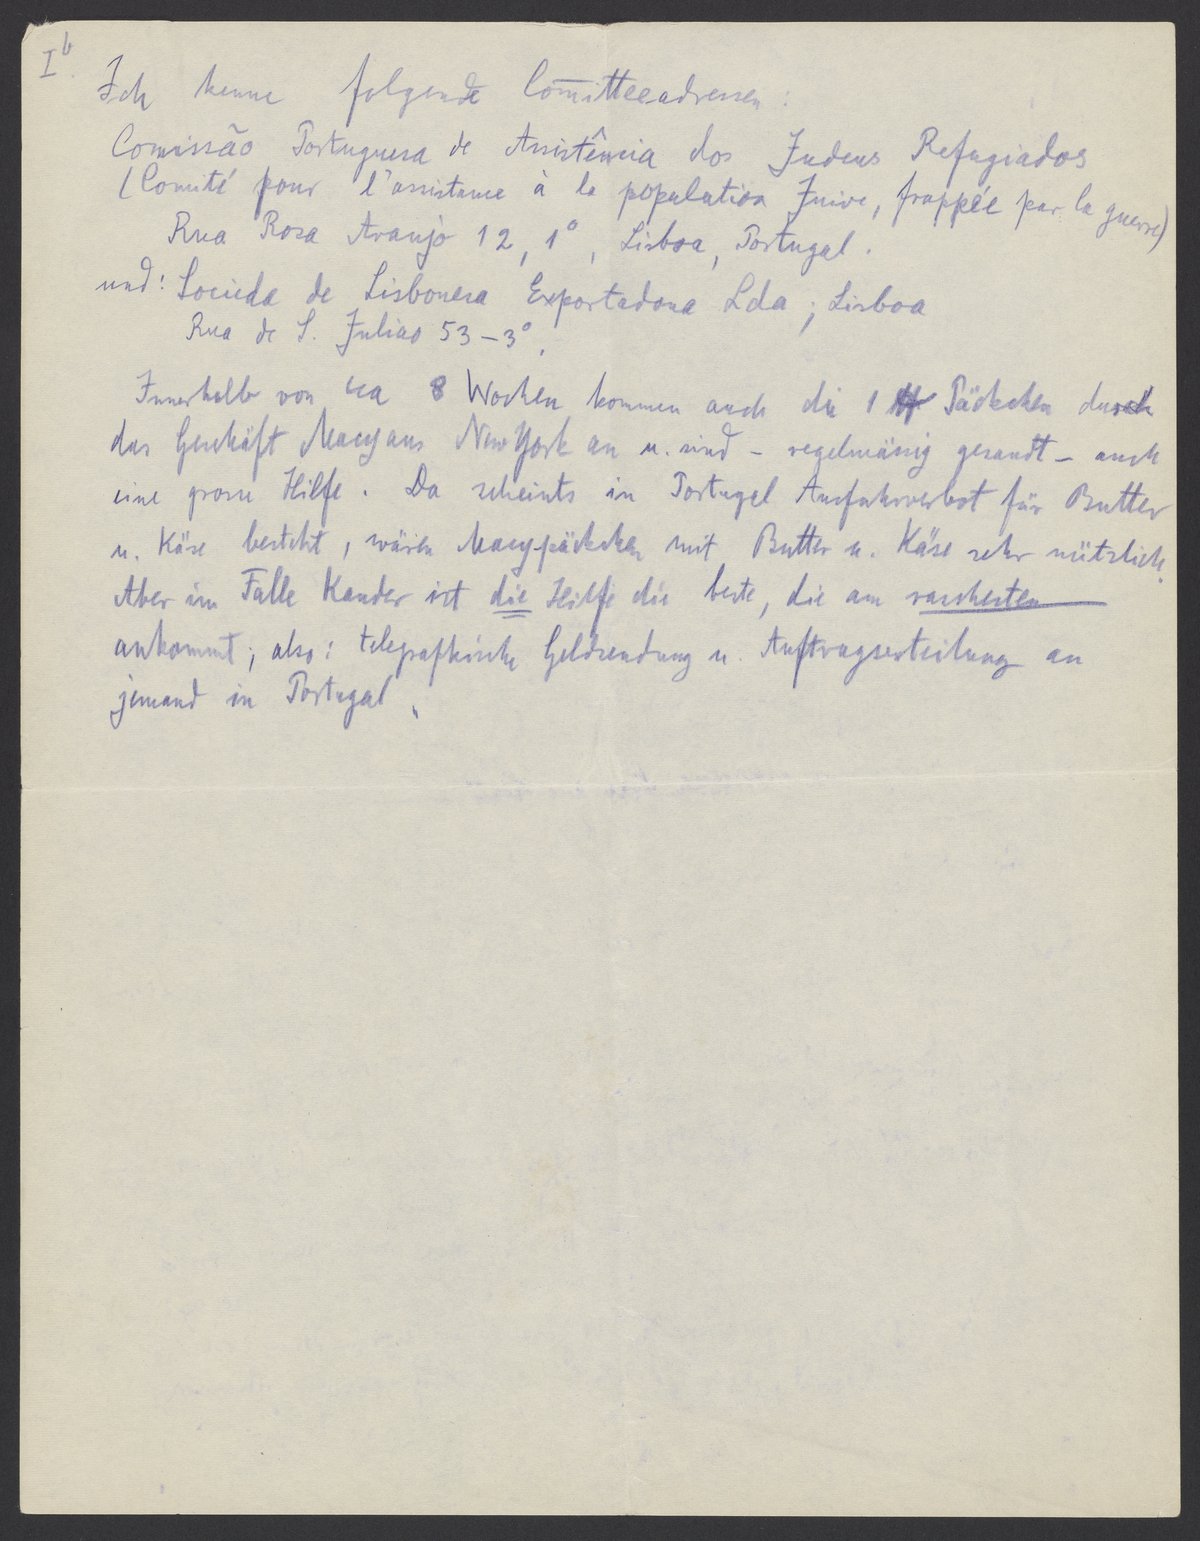 I b.
Ich kenne folgende Com̅itteeadressen:
Comissão Portuguesa de Assistência dos Judeus Refugiados
(Comité pour l'assistance à la population Juive, frappée par la guerre)
Rua Rosa Araujo 12, 1°, Lisboa, Portugal.
und: Socieda de Lisbonesa Exportadora Lda; Lisboa
Rua de S. Juliao 53-3°.
Innerhalb von ca 8 Wochen kommen auch die 1 tt Päckchen durch
das Geschäft Macy aus New York an u. sind - regelmässig gesandt - auch
eine grosse Hilfe. Da scheints in Portugal Ausfuhrverbot für Butter
u. Käse besteht, wären Macypäckchen mit Butter u. Käse sehr nützlich.
Aber im Falle Kander ist die Hilfe die beste, die am raschesten
ankommt; also: telegrafhische Geldsendung u. Auftragserteilung an
jemand in Portugal.